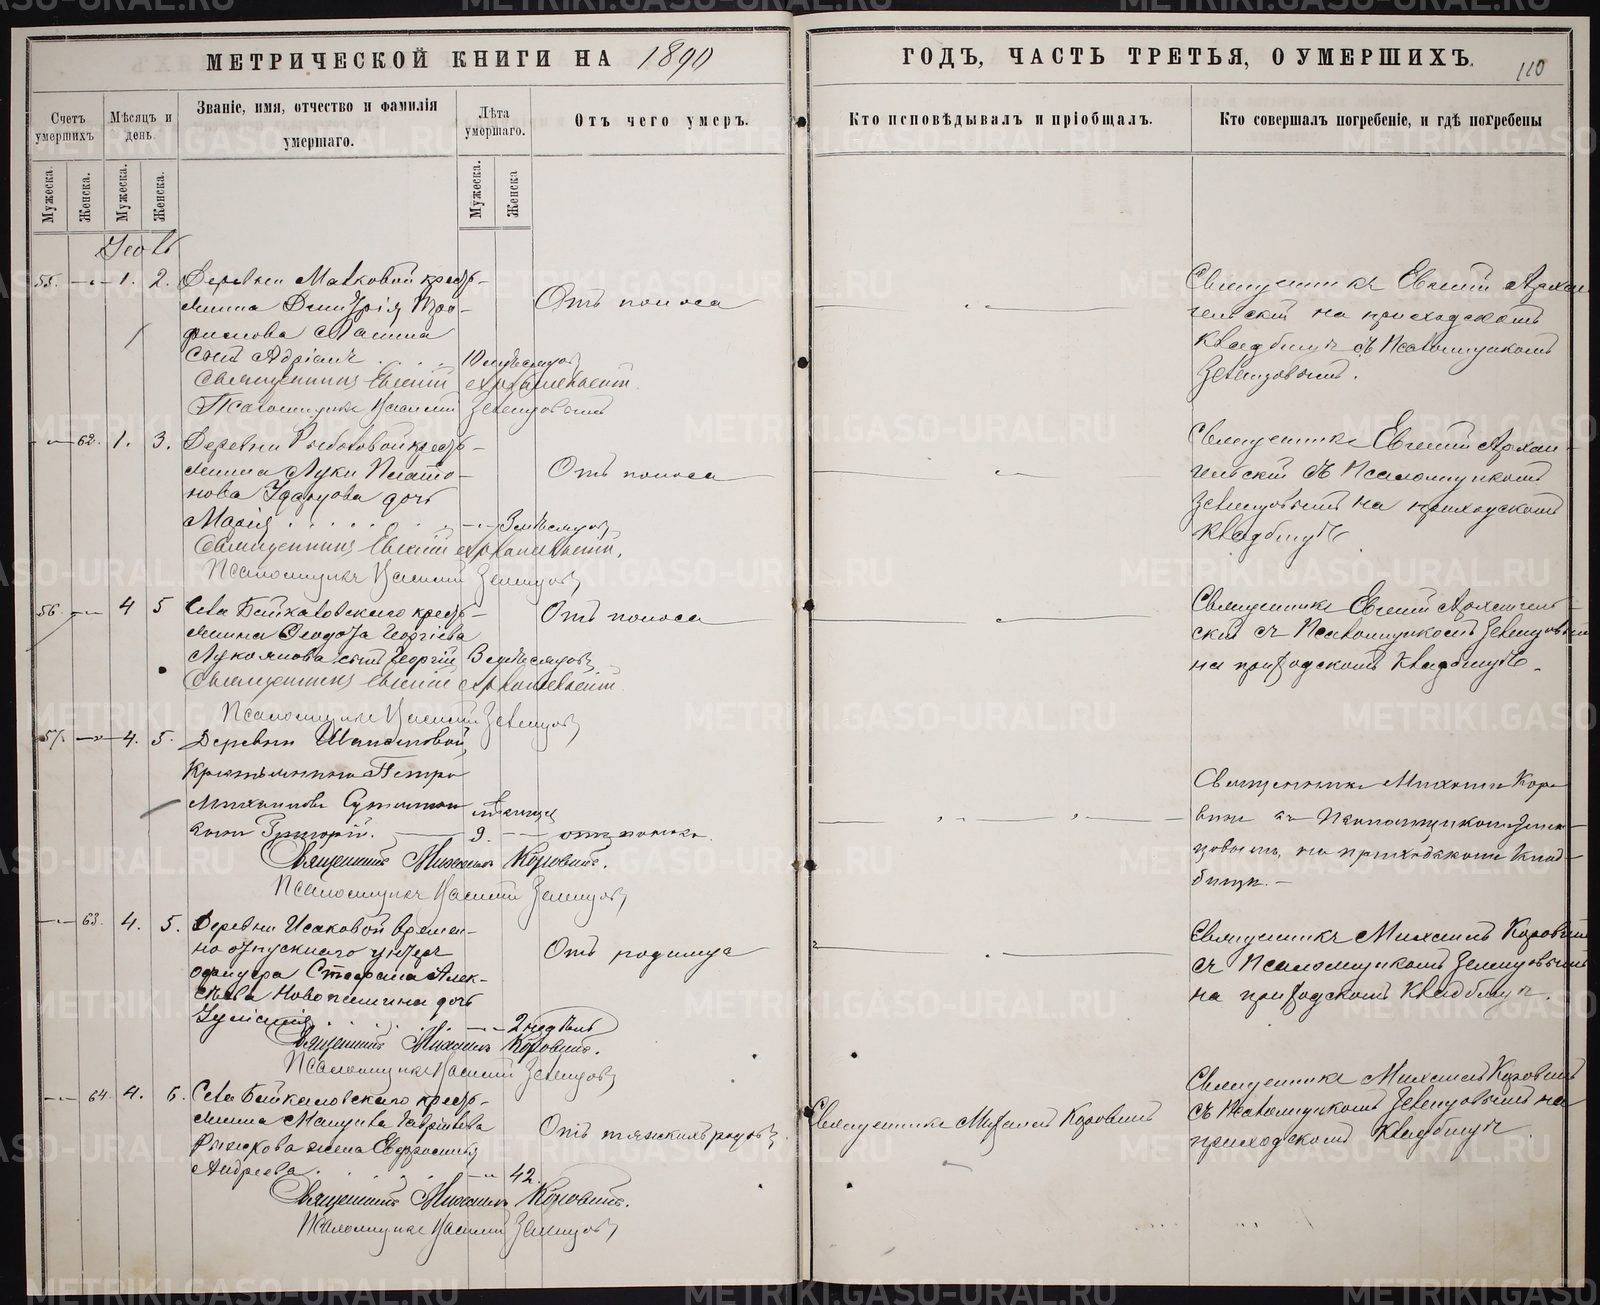 МЕТРИЧЕСКОЙ КНИГИ НА 1890
ГОДЪ, ЧАСТЬ ТРЕТЬЯ, О УМЕРШИХЪ.
110
Счетъ умершихъ
Мѣсяцъ и день.
Званіе, имя, отчество и фамилія умершаго.
Лѣта умершаго.
Отъ чего умеръ.
Кто исповѣдывалъ и пріобщалъ.
Кто совершалъ погребеніе, и гдѣ погребены
Мужеска. Женска. Мужеска. Женска. Мужеска. Женска
55. 1. 2. Деревни Малковой крестья-
нина Димитрія Тро-
фимова
сынъ Адріанъ 10 мѣсяцовъ
Отъ поноса
Священникъ Евгеній Архангельскій
Псаломщикъ Василій Земцовъ
Священникъ Евгеній Архан-
гельскій на приходскомъ
кладбищѣ съ Псаломщикомъ
Земцовымъ.
62. 1. 3. Деревни крестья-
нина Луки Плато-
нова дочь
Марія 3 мѣсяцовъ
Отъ поноса
Священникъ Евгеній Архангельскій
Псаломщикъ Василій Земцовъ
Священникъ Евгеній Архан-
гельскій съ Псаломщикомъ
Земцовымъ на приходскомъ
кладбищѣ
56. 4 5 Села Байкаловскаго крестья-
нина Ѳеодота Георгіева
Лукоянова сынъ Георгій 3 мѣсяцовъ
Отъ поноса
Священникъ Евгеній Архангельскій
Псаломщикъ Василій Земцовъ
Священникъ Евгеній Архангель-
скій съ Псаломщикомъ Земцовымъ
на приходскомъ кладбищѣ.
57. 4. 5. Деревни
Крестьянина Петра
Михаилова
сынъ Григорій. 9. мѣсяцевъ
отъ поноса
Священникъ Михаилъ Коровинъ.
Псаломщикъ Василій Земцовъ
Священникъ Михаилъ Коро-
винъ съ Псаломщикомъ Зем-
цовымъ, на приходскомъ клад-
бищѣ.
63. 4. 5. Деревни Исаковой времен-
но отпускнаго унтеръ
офицера Стефана Алек-
сѣева Новопашина дочь
Іуліанія 2 недѣль
Отъ родимца
Священникъ Михаилъ Коровинъ.
Псаломщикъ Василій Земцовъ
Священникъ Михаилъ Коровинъ
съ Псаломщикомъ Земцовымъ
на приходскомъ кладбищѣ.
64. 4. 6. Села Байкаловскаго крестья-
нина Гавріилова
жена Евдокія
Андреева 42.
Отъ тяжкихъ родовъ.
Священникъ Михаилъ Коровинъ
Священникъ Михаилъ Коровинъ.
Псаломщикъ Василій Земцовъ
Священникъ Михаилъ Коровинъ
съ Псаломщикомъ Земцовымъ на
приходскомъ кладбищѣ.
METRIKI.GASO-URAL.RU